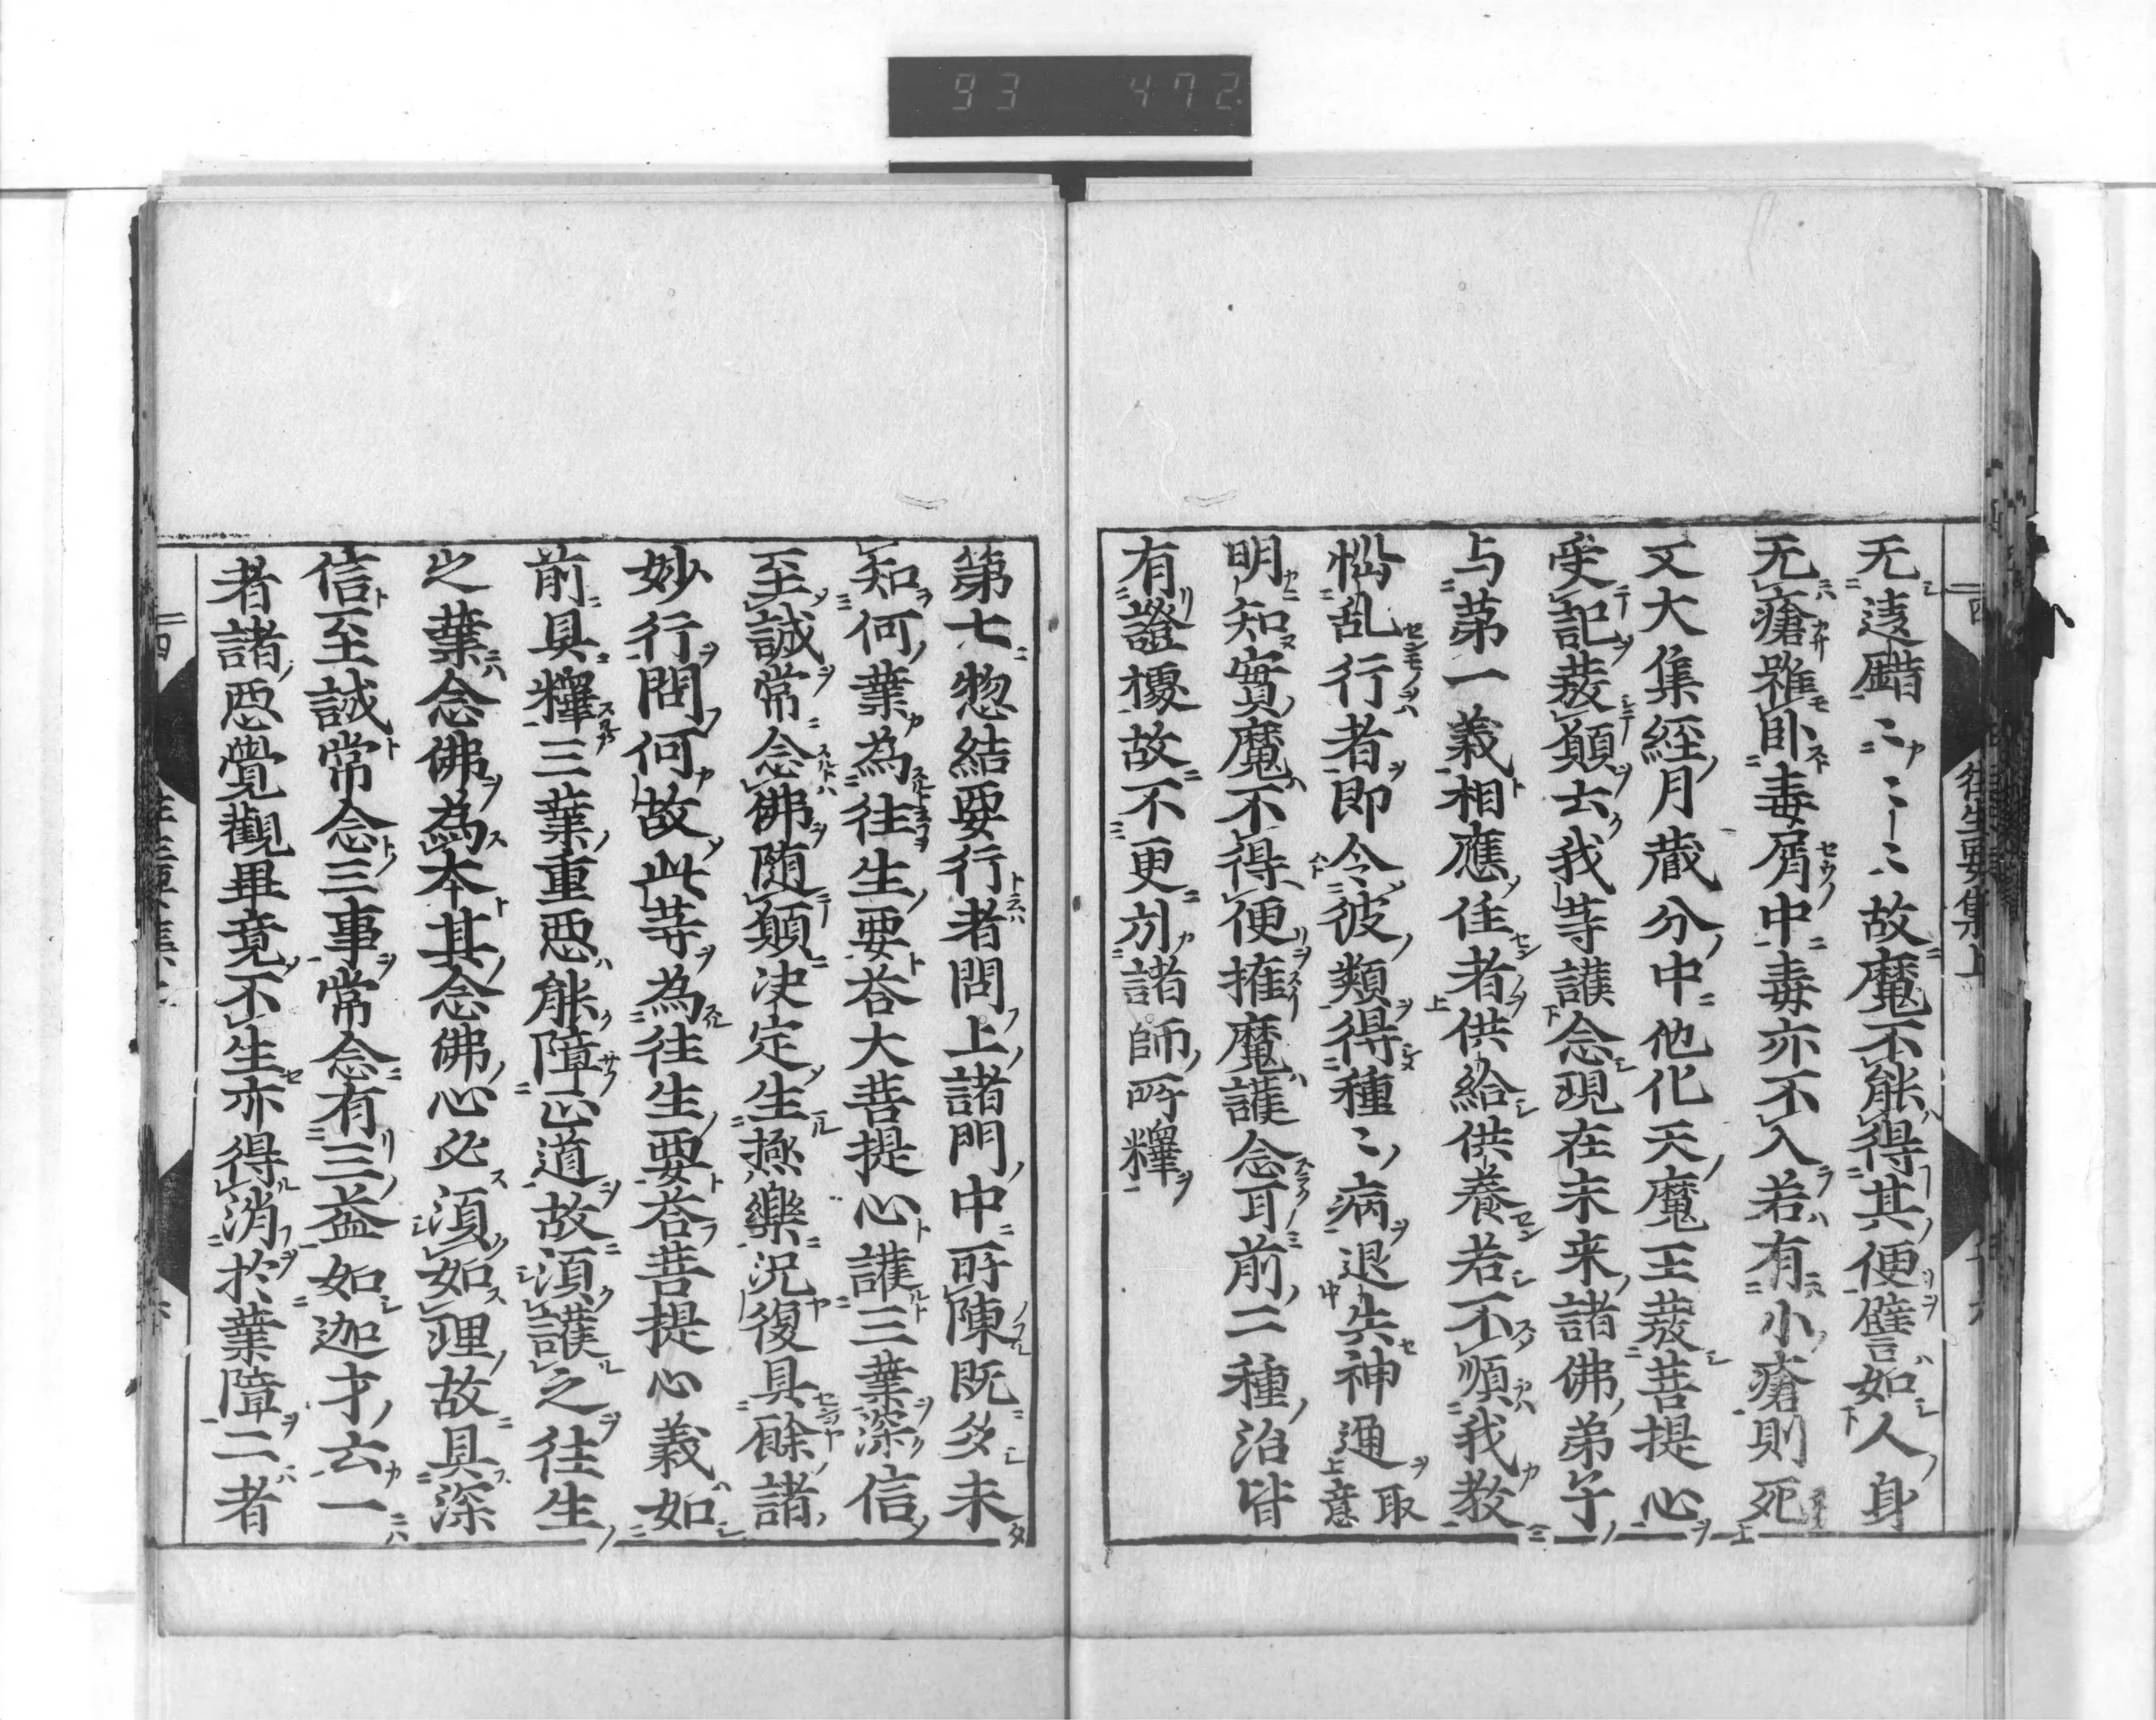 93 472
往生要集上
无違䤭〻〻〻故魔不能得其便譬如人身
无瘡雖臥毒屑中毒亦不入若有小瘡則死
又大集經月蔵分中他化天魔王𤼲菩提心
受記𤼲願云我䓁護念現在未来諸佛弟子
与苐一義相應住者供給供養若不順我教
惱乱行者即令彼類得種〻病退失神通取意
明知實魔不得便摧魔護念耳前二種治皆
有證㨿故不更引諸師所釋
第七惣結要行者問上諸門中所陳既多未
知何業為往生要荅大菩提心護三業深信
至誠常念佛随願决定生極樂況復具餘諸
妙行問何故此䓁為往生要荅菩提心義如
前具釋三業重惡能障正道故湏護之往生
之業念佛為本其念佛心必湏如理故具深
信至誠常念三事常念有三益如迦才云一
者諸惡覺觀畢竟不生亦得消於業障二者